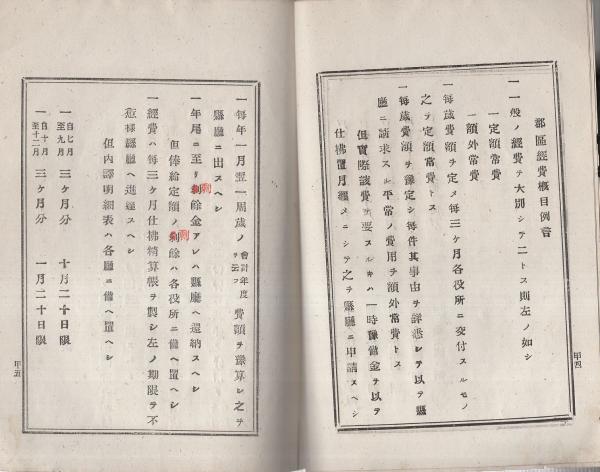 郡區經費概目例言
一一般ノ經費ヲ大別シテ二トス則左ノ如シ
一定額常費
一額外常費
一毎歳費額ヲ定メ毎三ケ月各役所ニ交付スルモノ
之ヲ定額常費トス
一毎歳費額ヲ豫定シ毎件其事由ヲ詳悉シテ以テ縣
廳ニ請求スル平常ノ費用ヲ額外常費トス
但實際該費ヲ要スルキハ一時豫備金ヲ以テ
仕拂置月纒メニシテ之ヲ縣廳ニ申請スヘシ
甲四
一毎年一月翌一周歳ノ會計年度ヲ云フ費額ヲ豫算シ之ヲ
縣廳ニ出スヘシ
一年尾ニ至リ剩餘金アレハ縣廳ヘ還納スヘシ
剩
但俸給定額ノ剩餘ハ各役所ニ備ヘ置ヘシ
剩
一經費ハ毎三ケ月仕拂精算帳ヲ製シ左ノ期限ヲ不
愆樣縣廳ヘ進逹スヘシ
但內譯明細表ハ各廳ニ備ヘ置ヘシ
一自七月至九月三ケ月分 十月二十日限
一自十月至十二月三ケ月分 一月二十日限
甲五